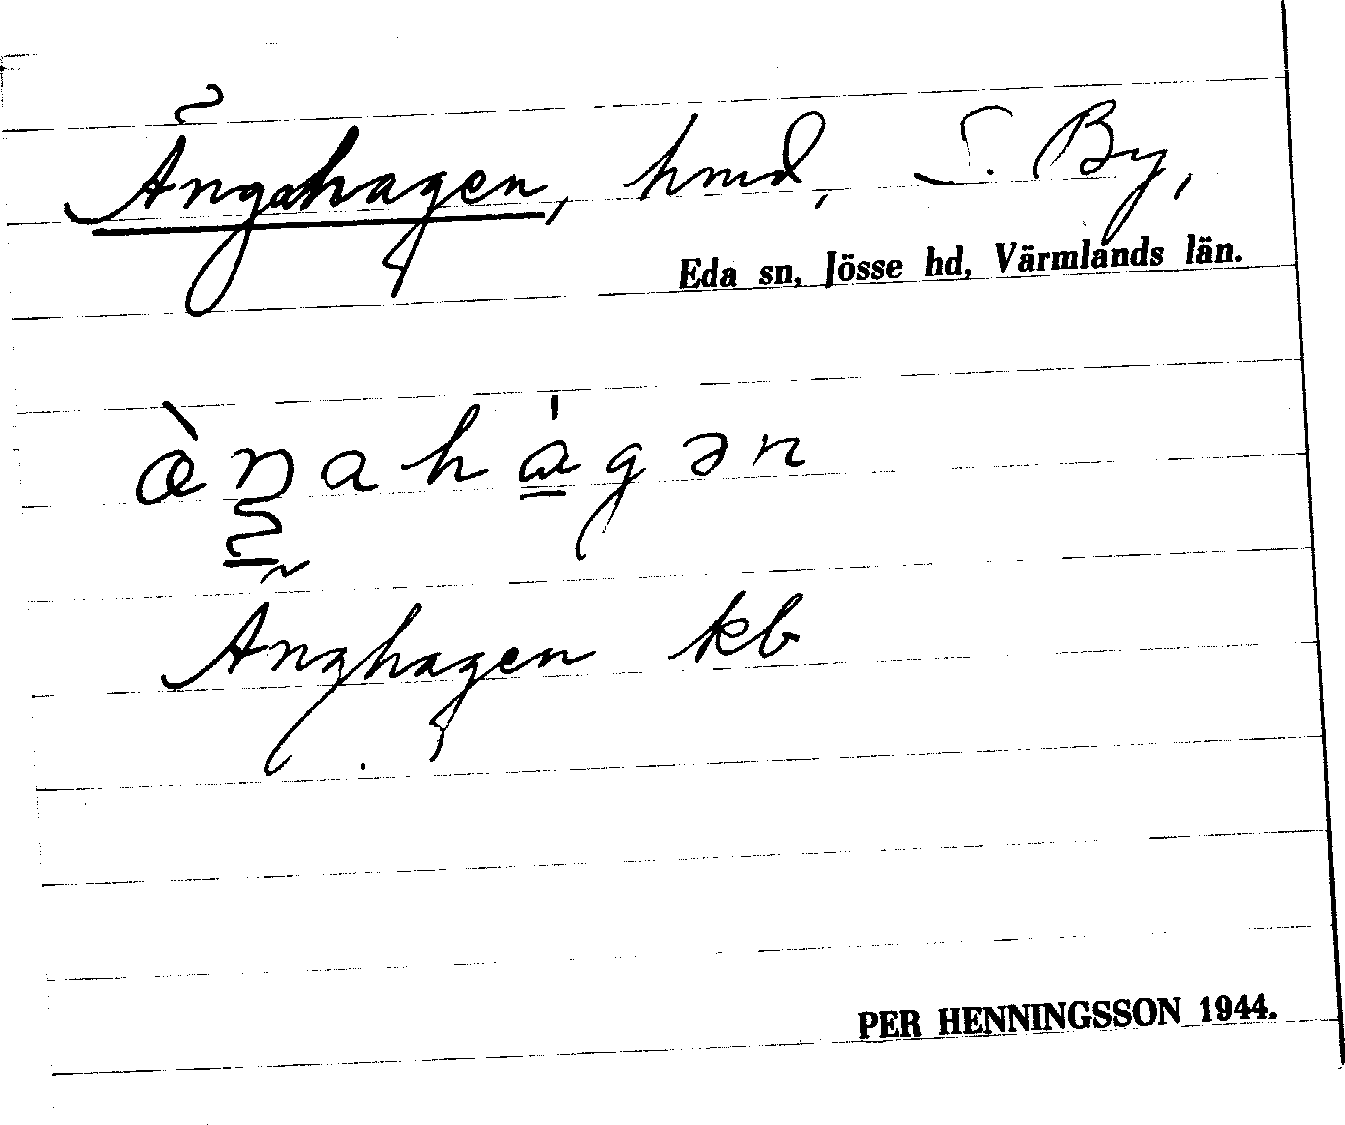 Ängahagen, hmd, S. By,
Eda sn, Jösse hd, Värmlands län.
æ̀ŋahágən
Änghagen kb
PER HENNINGSSON 1944.